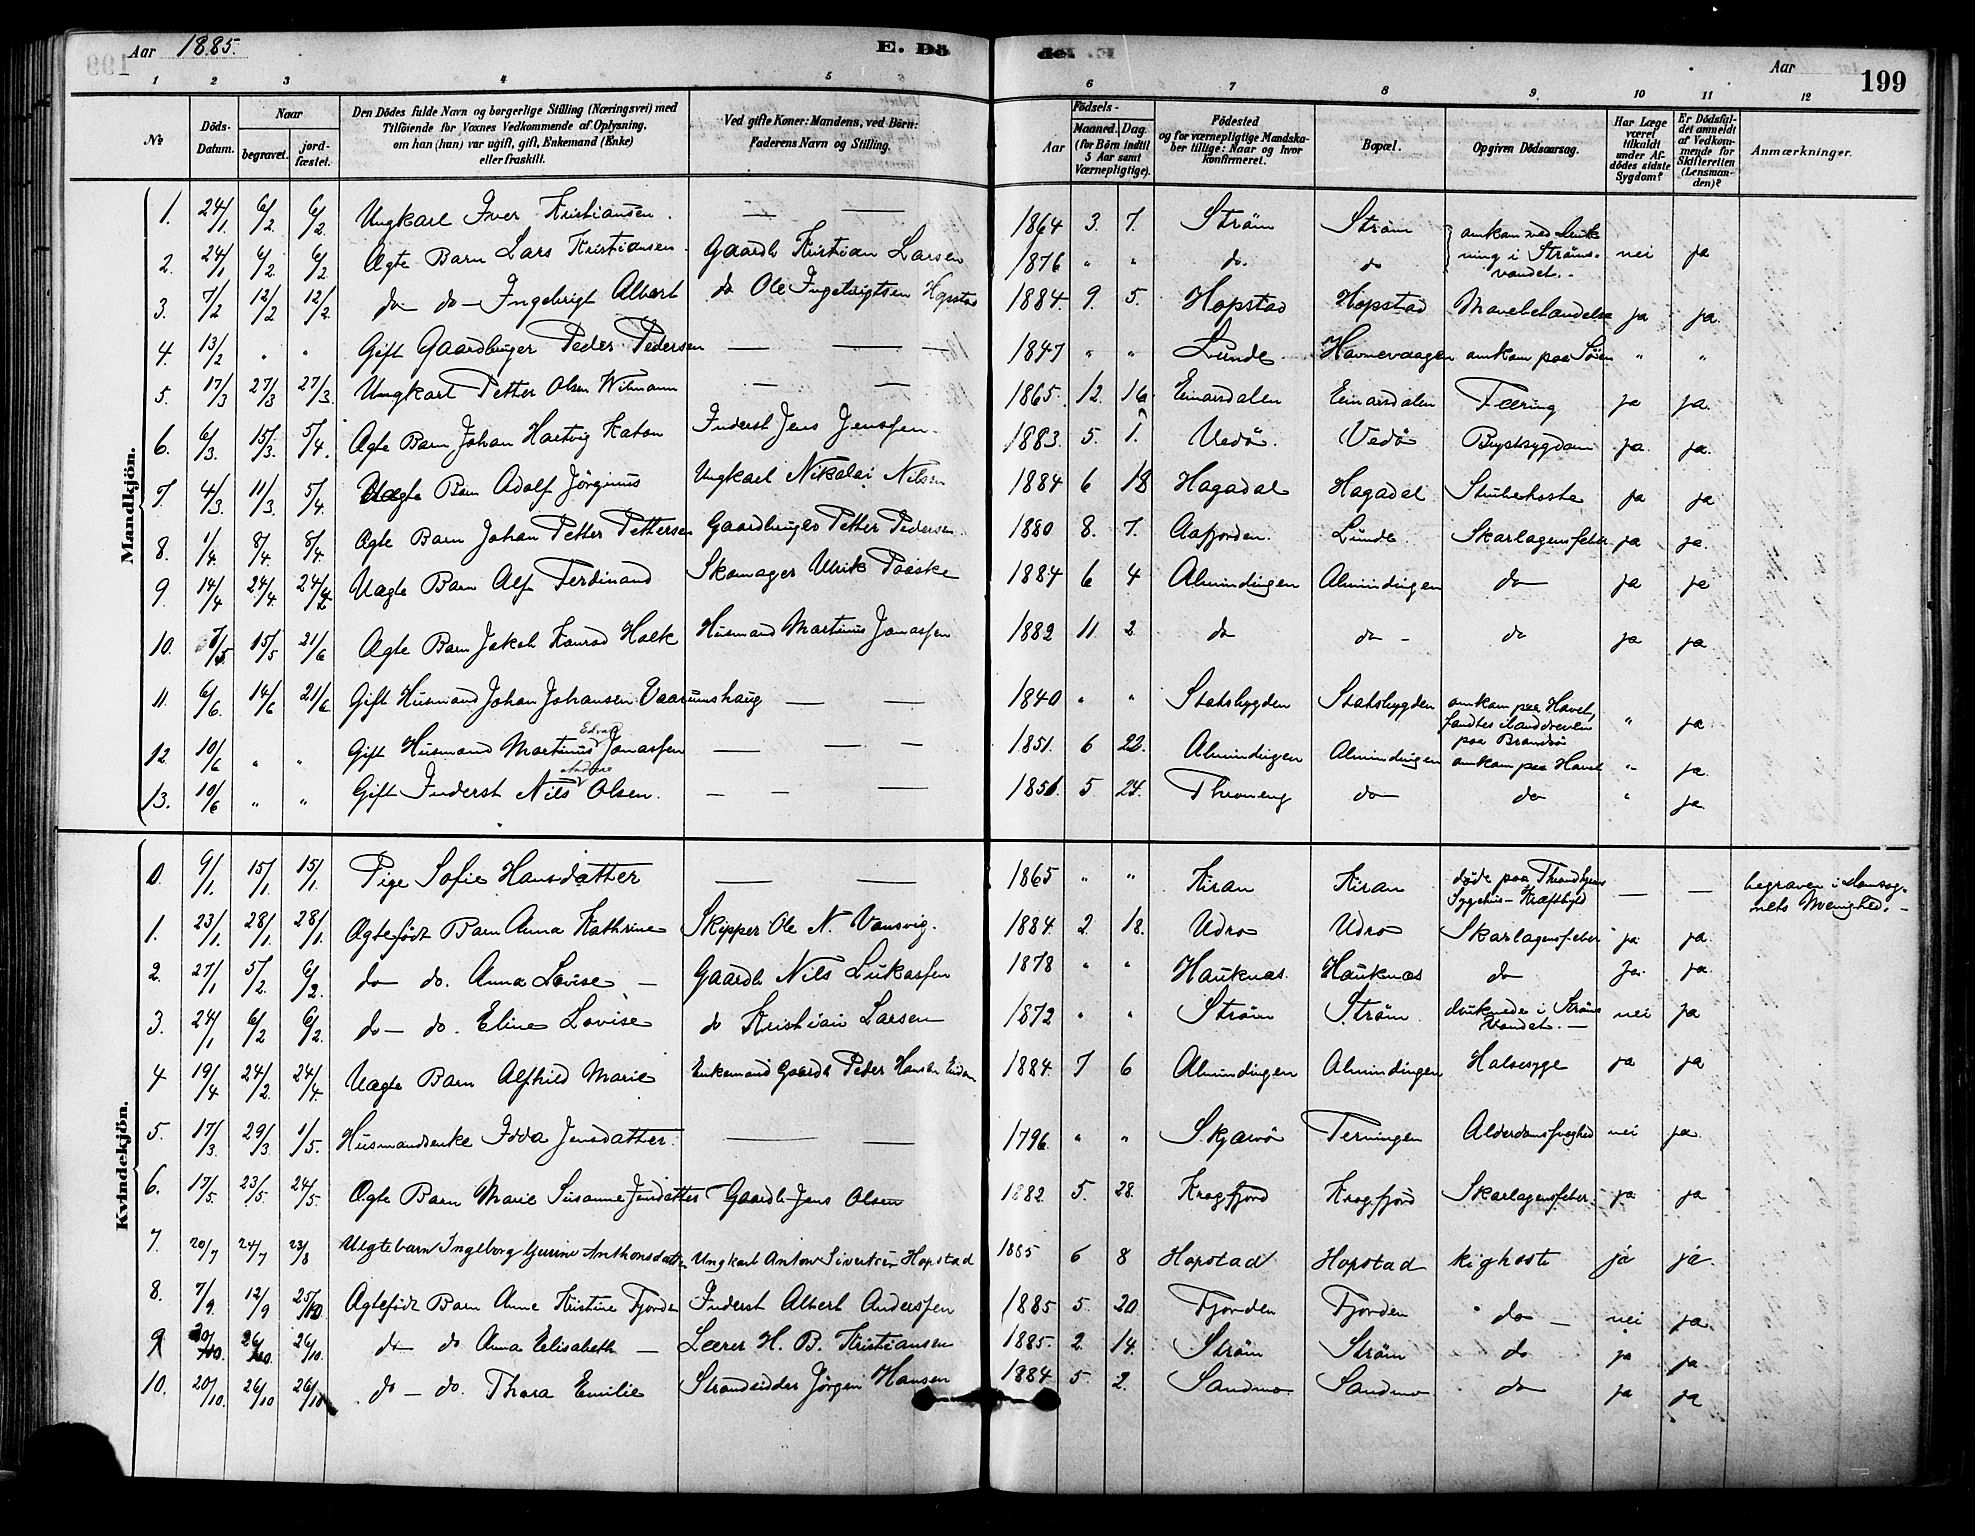 Aar 1885. E. Dö de. Aar 199
1 2 3 4 5 6 7 8 9. 10 11 12
№ Döds-Datum. Naar begravet. jord-fæstet. Den Dödes fulde Navn og borgerlige Stilling (Næringsvei) med Tilföiende for Voxnes Vedkommende af Oplysning, om han (hun) var ugift, gift, Enkemand (Enke) eller fraskilt. Ved gifte Koner: Mandens, ved Börn: Faderens Navn og Stilling. Födsels- Aar Maaned. Dag. (for Börn indtil 5 Aar samt Værnepligtige). Födested og for værnepligtige Mandskaber tillige: Naar og hvor konfirmeret. Bopæl. Opgiven Dödsaarsag. Har Læge været tilkaldt under Afdödes sidste Sygdom? Er Dödsfaldet anmeldt af Vedkommende for Skifteretten (Lensmanden)? Anmærkninger.
Mandkjön.
1. 24/1. 6/2. 6/2. Ungkarl Iver Kristiansen. — — 1864 3. 7. Ström Ström omkom ved Drukning i Ströms-vandet. -
2. 24/1 6/2. 6/2 Ægte Barn Lars Kristiansen. Gaardb Kristian Larsen 1876 " " do. do nei ja
3. 7/2 12/2 12/2. do do - Ingebrigt Albert do Ole Ingebrigtsen Hopstad 1884. 9. 5. Hopstad Hopstad ja ja.
4. 13/2 " " Gift Gaardbruger Peder Pedersen — — — 1847 " " Lunde. Havnevaagen omkom paa Söen " "
5. 17/3 27/3 27/3. Ungkarl Petter Olsen — — 1865. 12. 16. Einarsdalen Einarsdalen Tæring ja ja.
6. 6/3. 15/3. 5/4. Ægte Barn Johan Hartvig Inderst Jens Jenssen. 1883. 5. 1. Vedö. Vedö Brystsygdom ja. ja.
7. 4/3. 11/3. 5/4. Uægte Barn Adolf Jörginus Ungkarl Nikolai Nilsen 1884 6 18 Hagadal Hagadal Strubehoste ja ja
8. 1/4. 8/4. 8/4. Ægte Barn Johan Petter Pettersen Gaardbruger Petter Pedersen. 1880 8. 7. Aafjorden. Lunde. Skarlagensfeber ja ja.
9. 14/4 24/4. 24/4 Uægte Barn Alf Ferdinand Skomager Ulrik Paaske 1884 6 4 Almindingen Almindingen do ja ja
10. 7/5 15/5 21/6 Ægte Barn Jakob Konrad Husmand Martinus Jonassen 1882 11 2 do do - do ja ja.
11. 6/6. 14/6 21/6 Gift Husmand Johan Johansen Vaarumshaug — — 1840 " " Statsbygden Statsbygden omkom paa Havet, fandtes paa " ja
12. 10/6 " " Gift Husmand Martinus Edvard Jonassen — — — 1851. 6 22. Almindingen Almindingen omkom paa Havet " ja.
13. 10/6 " " Gift Inderst Nils Andreas Olsen. — — — 1856. 5 24. do do " ja.
Kvindekjön.
0. 9/1. 15/1. 15/1. Pige Sofie Hansdatter — — 1865 " " Kiran Kiran döde paa Throndhjems Sygehus - — — begraven i nets Menighed. -
1. 23/1. 28/1. 28/1. Ægtefödt Barn Anna Kathrine Skipper Ole N. Vansvig. 1884. 2. 18. Udro Udro Skarlagensfeber ja ja.
2. 27/1 5/2. 6/2. do do. Anna Lovise — Gaardb Nils Lukassen 1878 " " Hauknæs. Hauknæs do ja. ja
3. 24/1 6/2 6/2. do - do. Eline Lovise do Kristian Larsen 1872 " " Ström Ström. druknede i Ströms Vandet. - nei ja
4 19/4 24/2. 24/4 Uægte Barn Alfhild Marie Enkemand Gaardb Peder Hansen 1884. 7 6 Almindingen Almindingen Halssyge ja ja
5. 17/3 29/3. 1/5. Husmandsenke Idda Jensdatter. — — 1796. " " Skjærvö Terningen Alderdomssvaghed nei ja.
6. 17/5 23/5 24/5. Ægte Barn Marie Susanne Jensdatter Gaardb Jens Olsen 1882. 5. 28. Kragfjord Kragfjord Skarlagensfeber. ja ja
7. 20/7 24/7 23/8 Uægtebarn Ingeborg Anthonsdatter Ungkarl Anton Sivertsen Hopstad 1885 6 8 Hopstad Hopstad kighoste ja ja.
8. 7/9. 12/9 25/10 Ægtefödt Barn Anne Kristine Fjorden Inderst Albert Anderssen 1885. 5. 20. Fjorden Fjorden do — nei ja.
9. 20/10. 26/10. 26/10. do do Anna Elisabeth — Lærer H. B. Kristiansen 1885. 2. 14. Ström Ström do ja ja
10. 20/10. 26/10 26/10 do - do. Thora Emilie Strandsidder Jörgen Hansen 1884. 5. 2. Sandmo Sandmo do ja ja